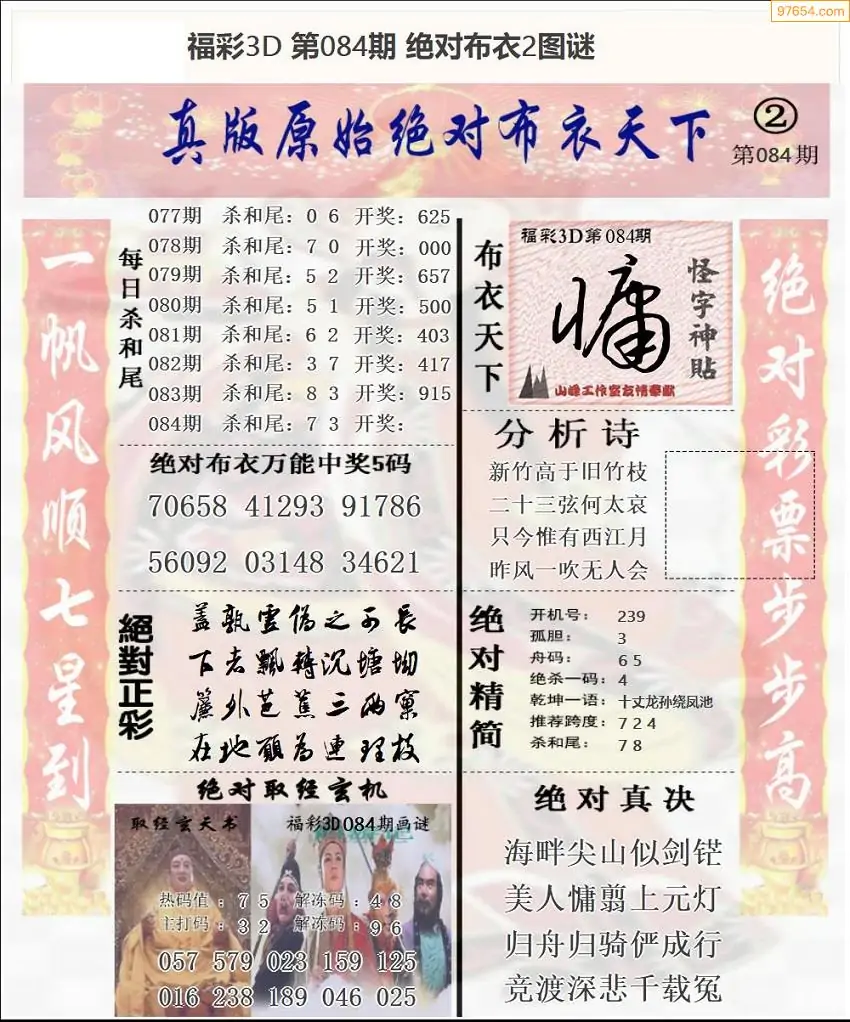 97654.com
福彩3D 第084期 绝对布衣2图谜
真版原始绝对布衣天下
②
第084期
一帆风顺七星到
每日杀和尾
077期 杀和尾：0 6 开奖：625
078期 杀和尾：7 0 开奖：000
079期 杀和尾：5 2 开奖：657
080期 杀和尾：5 1 开奖：500
081期 杀和尾：6 2 开奖：403
082期 杀和尾：3 7 开奖：417
083期 杀和尾：8 3 开奖：915
084期 杀和尾：7 3 开奖：
绝对布衣万能中奖5码
70658 41293 91786
56092 03148 34621
絕對正彩
下去飄轉沉塘坳
簾外芭蕉三兩窠
在地願為連理枝
绝对取经玄机
取经玄天书
福彩3D084期画谜
热码值：7 5 解冻码：4 8
主打码：3 2 解冻码：9 6
057 579 023 159 125
016 238 189 046 025
布衣天下
福彩3D第084期
慵
怪字神貼
山峰工作室友情奉献
分析诗
新竹高于旧竹枝
二十三弦何太哀
只今惟有西江月
昨风一吹无人会
绝对精简
开机号： 239
孤胆： 3
舟码： 6 5
绝杀一码：4
乾坤一语：十丈龙孙绕凤池
推荐跨度：7 2 4
杀和尾： 7 8
绝对真决
海畔尖山似剑铓
美人慵翦上元灯
归舟归骑俨成行
竞渡深悲千载冤
绝对彩票步步高